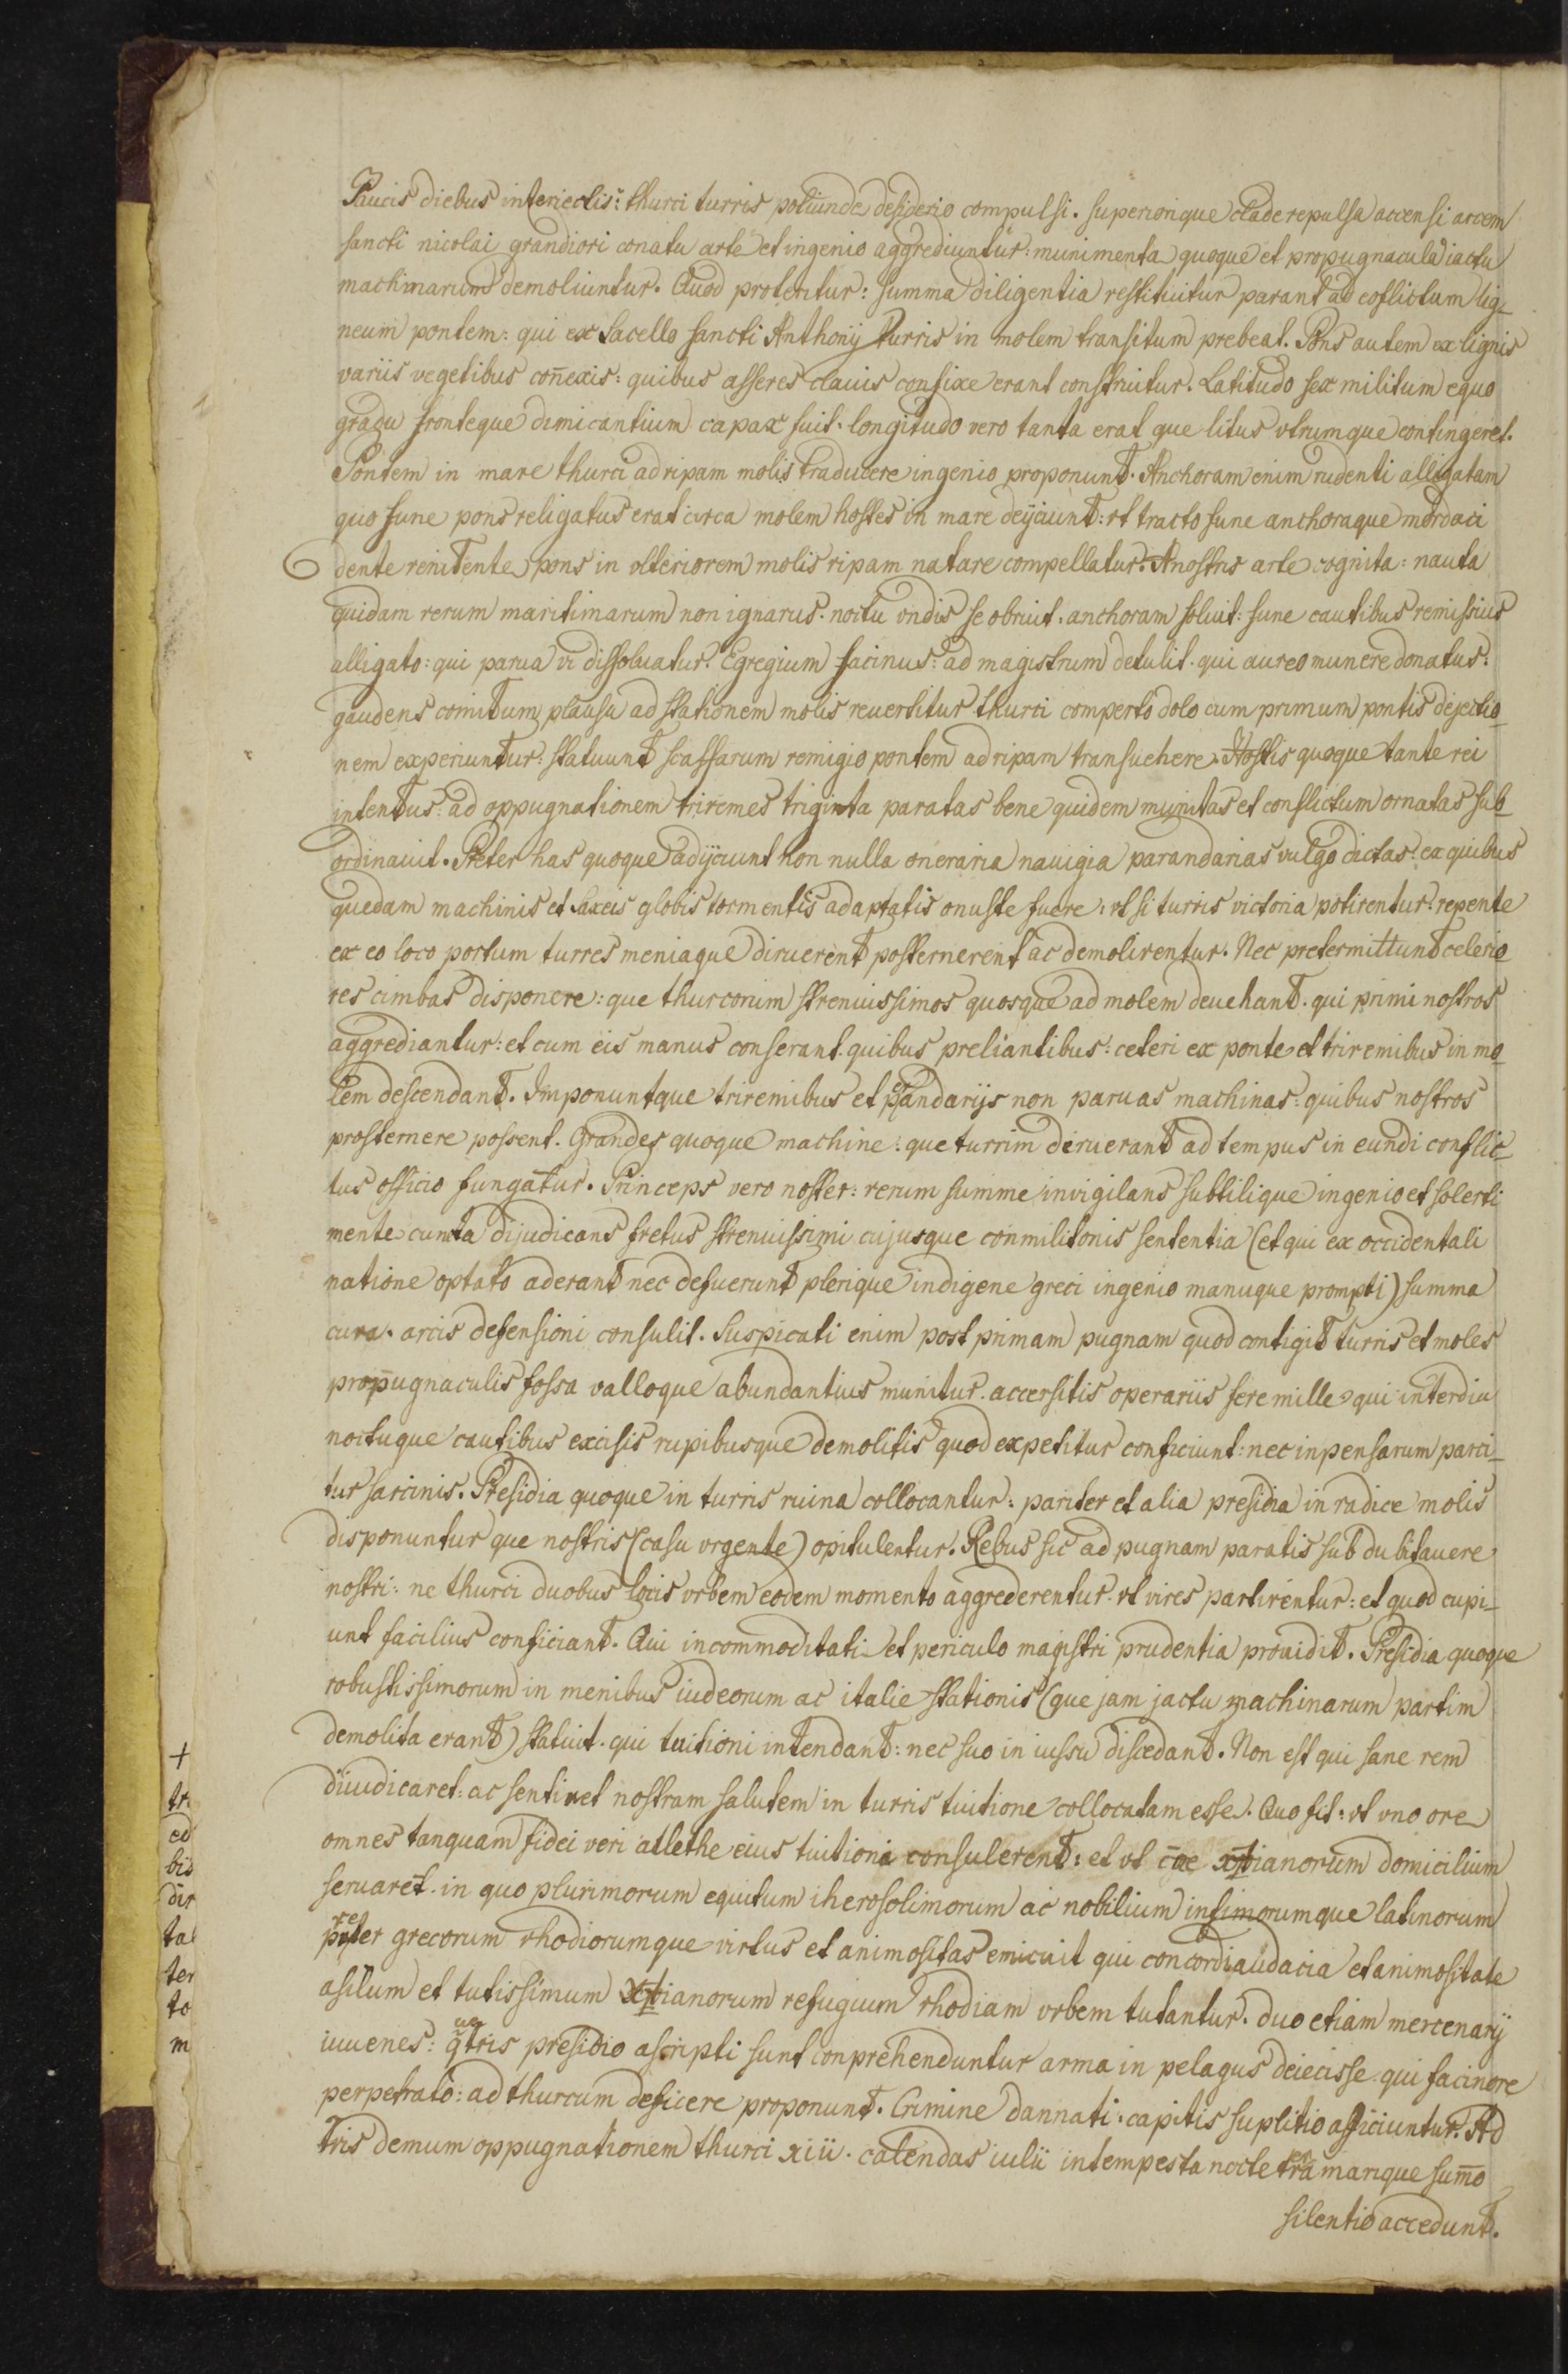 Paucis diebus interiectis: thurci turris potiunde desiderio compulsi. superiorique clade repulsa accensi arcem
sancti nicolai grandiori conatu arte et ingenio aggrediuntur: munimenta quoque et propugnacula iactu
machinarum demoliuntur. Quod proteritur: summa diligentia restituitur parant ad coflictum lig_
neum pontem: qui ex Sacello sancti Anthonij turris in molem transitum prebeat. Pons autem ex lignis
variis vegetibus coñexis: quibus asseres clauis confixe erant construitur. Latitudo sex militum equo
gradu fronteque dimicantium capax fuit. longitudo vero tanta erat que litus vtrumque contingeret.
Pontem in mare thurci ad ripam molis traducere ingenio proponunt. Anchoram enim rudenti alligatam
quo fune pons religatus erat circa molem hostes in mare deijciunt: vt tracto fune anchoraque mordaci
dente renitente pons in vlteriorem molis ripam natare compellatur. A nostris arte cognita: nauta
quidam rerum maritimarum non ignarus. noctu vndis se obruit. anchoram soluit: fune cautibus remissius
alligato: qui parua vi dissoluatur. Egregium facinus: ad magistrum detulit. qui aureo munere donatus.
gaudens comitum plausu ad stationem molis reuertitur thurci comperto dolo cum primum pontis dejectio_
nem experiuntur: statuunt scaffarum remigio pontem ad ripam transuehere. Hostis quoque tante rei
intentus: ad oppugnationem triremes triginta paratas bene quidem munitas et conflictum ornatas sub_
ordinauit. Preter has quoque adijciunt non nulla oneraria nauigia parandarias vulgo dictas: ex quibus
quedam machinis et saxeis globis tormentis adaptatis onuste fuere: vt si turris victoria potirentur: repente
ex eo loco portum turres meniaque diruerent posternerent ac demolirentur. Nec pretermittunt celerio
res cimbas disponere: que thurcorum strenuissimos quosque ad molem deuehant. qui primi nostros
aggrediantur: et cum eis manus conserant. quibus preliantibus: ceteri ex ponte et triremibus in mo_
lem descendant. Imponuntque triremibus et pandarijs non paruas machinas: quibus nostros
prosternere possent. Grandes quoque machine: que turrim diruerant ad tempus in eundi conflic_
tus officio fungatur. Princeps vero noster: rerum summe invigilans subtilique ingenio et solerti
mente cuncta dijudicans fretus strenuissimi cujusque conmilitonis sententia (et qui ex occidentali
natione optato aderant nec defuerunt plerique indigene greci ingenio manuque prompti) summa
cura. arcis defensioni consulit. Suspicati enim post primam pugnam quod contigit turris et moles
propugnaculis fossa valloque abundantius munitur. accersitis operariis fere mille qui interdiu
noctuque cautibus excisis rupibusque demolitis quod expetitur conficiunt: nec inpensarum parci_
tur sarcinis. Presidia quoque in turris ruina collocantur: pariter et alia presidia in radice molis
disponuntur que nostris (casu vrgente) opitulentur. Rebus sic ad pugnam paratis subdubitauere
nostri: ne thurci duobus locis vrbem eodem momento aggrederentur. vt vires partirentur: et quod cupi_
unt facilius conficiant. Cui incommoditati et periculo magistri prudentia prouidit. Presidia quoque
robustissimorum in menibus iudeorum ac italie stationis (que jam jactu machinarum partim
demolita erant) statuit. qui tuitioni intendant: nec suo in iussu discedant. Non est qui sane rem
diiudicaret: ac sentiret nostram salutem in turris tuitione collocatam esse. Quo fit: vt vno ore
omnes tanquam fidei veri atlethe eius tuitioni consulerent: et vt xp̄ianorum domicilium
seruaret. in quo plurimorum equitum iherosolimorum ac nobilium infimorumque latinorum
preter grecorum rhodiorumque virtus et animositas emicuit qui concordi audacia et animositate
asilum et tutissimum xp̄ianorum refugium rhodiam vrbem tutantur. duo etiam mercenarij
iuuenes: presidio ascripti sunt conprehenduntur arma in pelagus deiecisse. qui facinore
perpetrato: ad thurcum deficere proponunt. Crimine dannati. capitis suplitio afficiuntur. Ad
tris demum oppugnationem thurci xiii. calendas iulii intempesta nocte tra marique sum̄o
silentio accedunt.
+
tri
ed
bis
dir
tal
ter
to
m